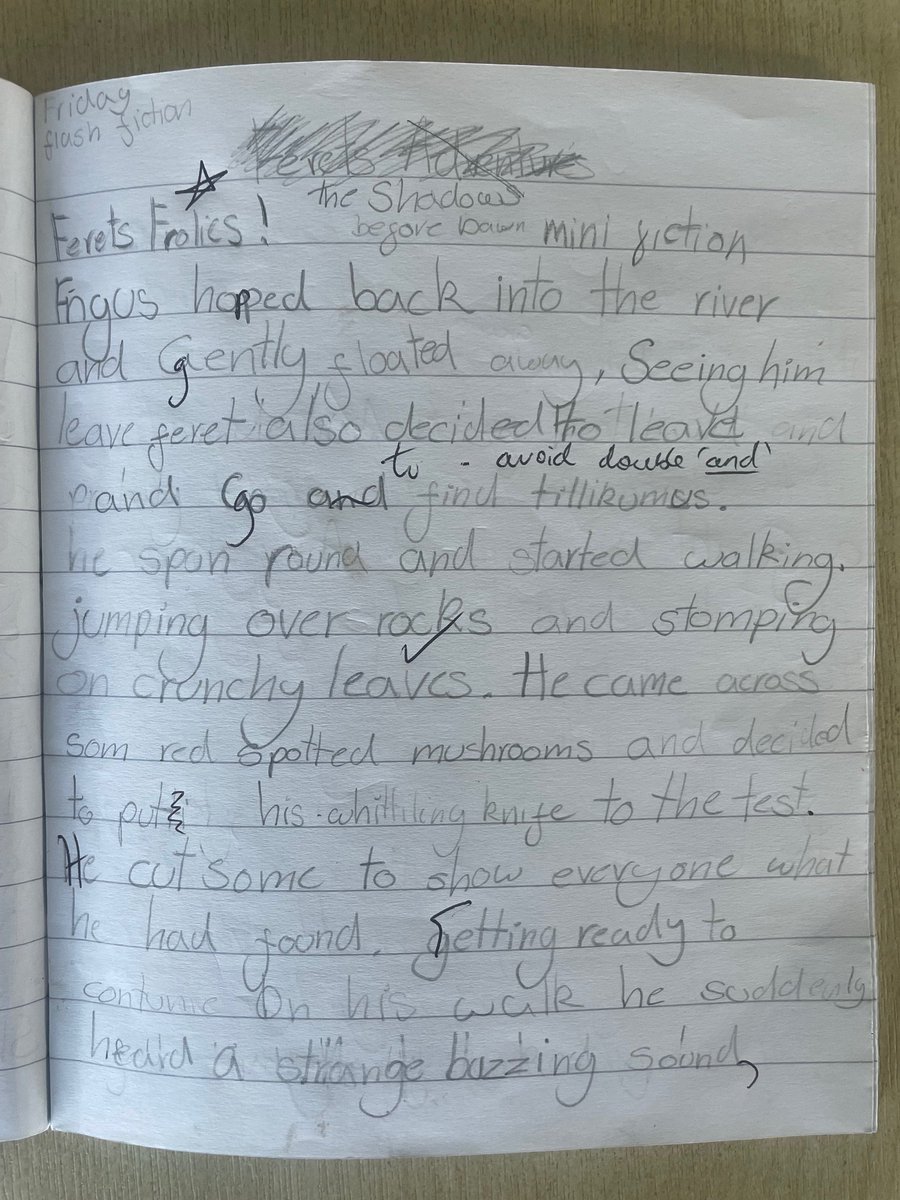 Friday
flash fiction
Ferets Adventures
the Shadows
Ferets Frolics! before Dawn mini fiction
Fingus hopped back into the river
and Gently floated away, Seeing him
leave feret also decided to leave and
to - avoid double 'and'
and Go and find tillikumus.
he span round and started walking.
jumping over rocks and stomping
on crunchy leaves. He came across
som red spotted mushrooms and decided
to put his whittiling knife to the test.
He cut some to show everyone what
he had found. Getting ready to
contume on his walk he suddenly
heard a strange buzzing sound,